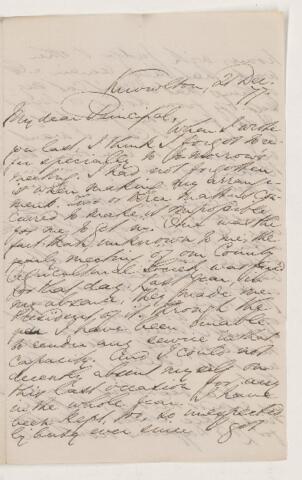 Knowlton, 2 Dec.
77.
My dear Principal,
When I wrote
you last, I think I forgot to re-
fer specially to tomorrow's
meeting. I had not forgotten
it when making my arrange-
ment. Two or three matters con-
curred to make it impossible
for me to get up. One was the
fact that, unknown to me, the
yearly meeting of our County
Agricultural Society was fixed
for that day. Last year, in
my absence, they made me
President of it. Through the
year I have been unable
to render any service in that
capacity. And I could not
decently absent myself on
this last occasion for
in the whole year. I have
been kept, too, so unexpectedly
busy ever since I got